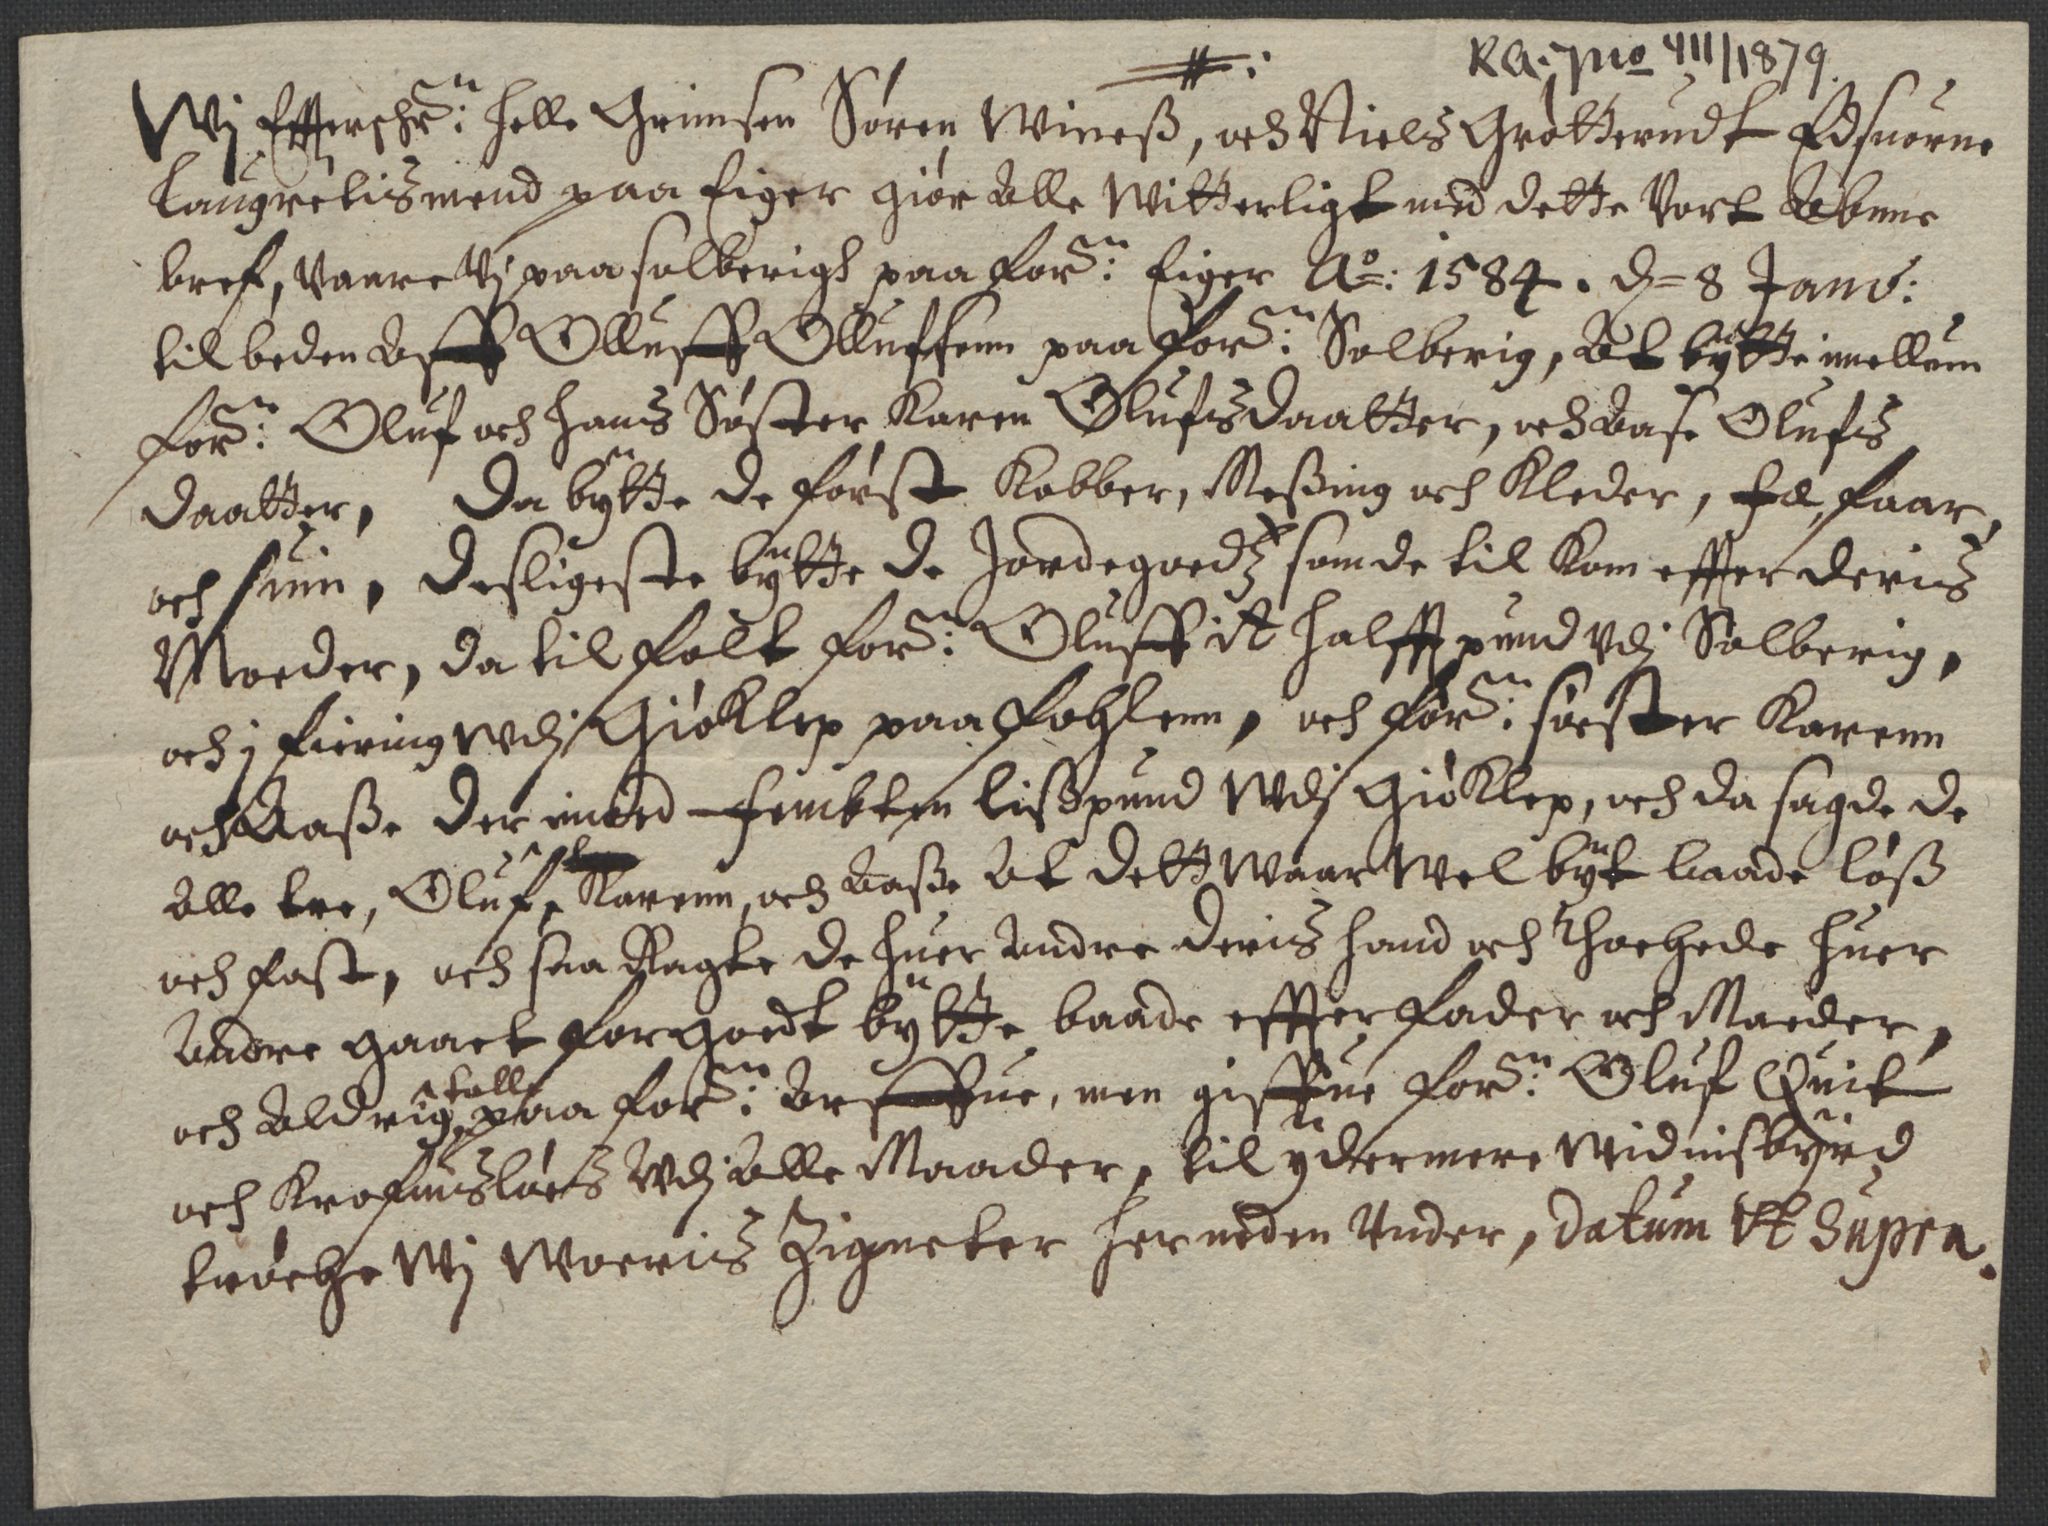 RA. Jno 411/1879.
#:
Wj Effterschrne: Helle Grimsen Sören Wineß, och Niels Grötterudt Edsuorne
Laugretismend paa Eiger giör alle Witterligt med dette Vort Abne
bref, Vaare Vj paa solberigh paa forne: Eiger Ao: 1584. d= 8 Janu:
tilbeden aff Olluff Olluffsenn paa forne: Solberig, at bÿtte imellem
forne: Oluf och hans Söster Karen Olufsdaatter, och Aase Olufs
daatter, Da bÿtte de först Kobber, Meßing och Kleder, fæ, faar,
och suin, desligeste bÿtte de Jordegodz som de til kom effter deris
Moeder, da til falt forne: Oluff it halff pund Vdj Solberig,
och j fiering Wdj Giöklep paa foßenn, och forne: söster Karenn
och Aaße der imod femten lißpund Wdj Giöklep, och da sagde de
alle tre, Oluf, Karenn, och Aaße at dett waar wel bÿt baade löß
och fast, och saa Ragte de huer andre deris hand och thachede huer
andre gaaet for goedt bÿtte baade effter fader och Moeder,
och aldrig talle paa forne: arffue, men giffue forne: Oluf Quit
och Krafuuslöes Vdj alle Maader, til ÿdermere Widnisbÿrd
tröche Wj Woeris Zigneter her neden Vnder, datum Vt Supra.